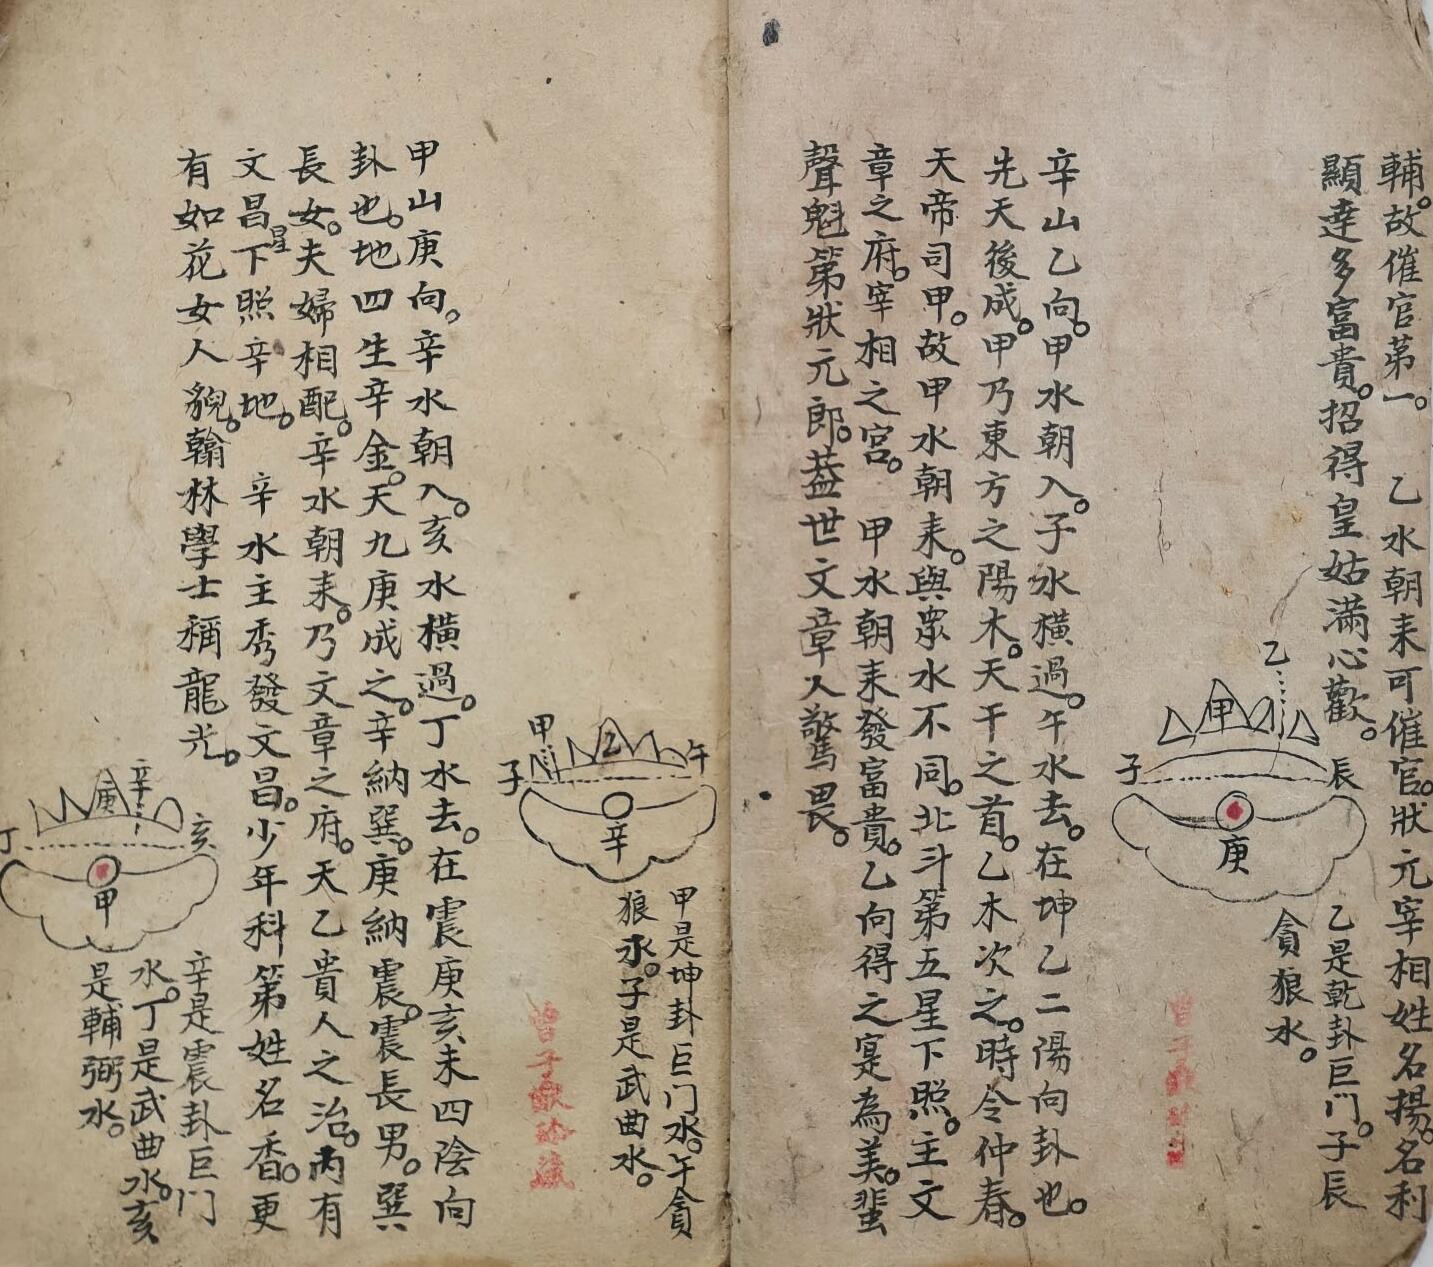 輔。故催官第一。　乙水朝来可催官。狀元宰相姓名揚。名利
顯達多富貴。招得皇姑滿心歡。
乙
甲
子
辰
庚
乙是乾卦巨门。子辰
貪狼水。
辛山乙向。甲水朝入。子水橫過。午水去。在坤乙二陽向卦也。
先天後成。甲乃東方之陽木。天干之首。乙木次之。時令仲春。
天帝司甲。故甲水朝来。與衆水不同。北斗第五星下照。主文
章之府。宰相之宮。　甲水朝来發富貴。乙向得之寔為美。蜚
聲魁第狀元郎。蓋世文章人驚畏。
甲
乙
子
午
辛
甲是坤卦巨门水。午貪
狼水。子是武曲水。
甲山庚向。辛水朝入。亥水橫過。丁水去。在震庚亥未四陰向
卦也。地四生辛金。天九庚成之。辛納巽。庚納震。震長男。巽
長女。夫婦相配。辛水朝来。乃文章之府。天乙貴人之治。丙有
文昌星下照辛地。　辛水主秀發文昌。少年科第姓名香。更
有如花女人貌。翰林學士稱龍光。
辛
庚
丁
亥
甲
辛是震卦巨门
水。丁是武曲水。亥
是輔弼水。